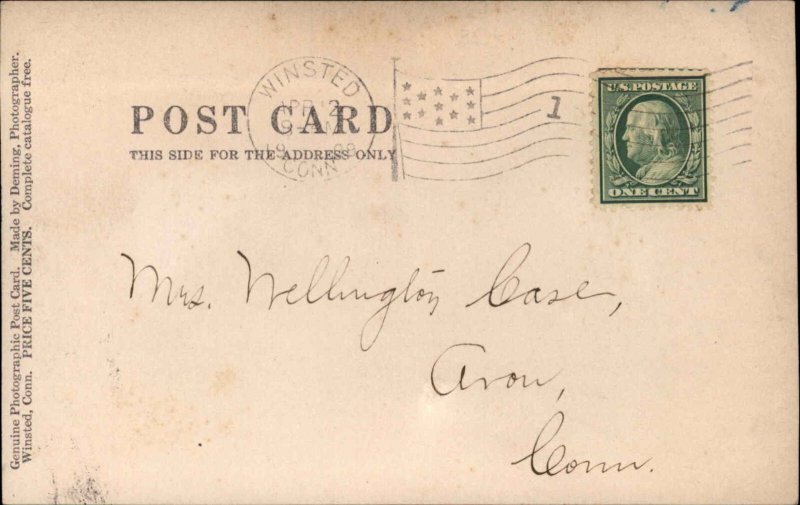 Genuine Photographic Post Card. Made by Deming, Photographer.
Winsted, Conn. PRICE FIVE CENTS. Complete catalogue free.
POST CARD
THIS SIDE FOR THE ADDRESS ONLY
WINSTED
APR 12
CONN
1
U.S. POSTAGE
ONE CENT
Mrs. Wellington Case,
Avon,
Conn.